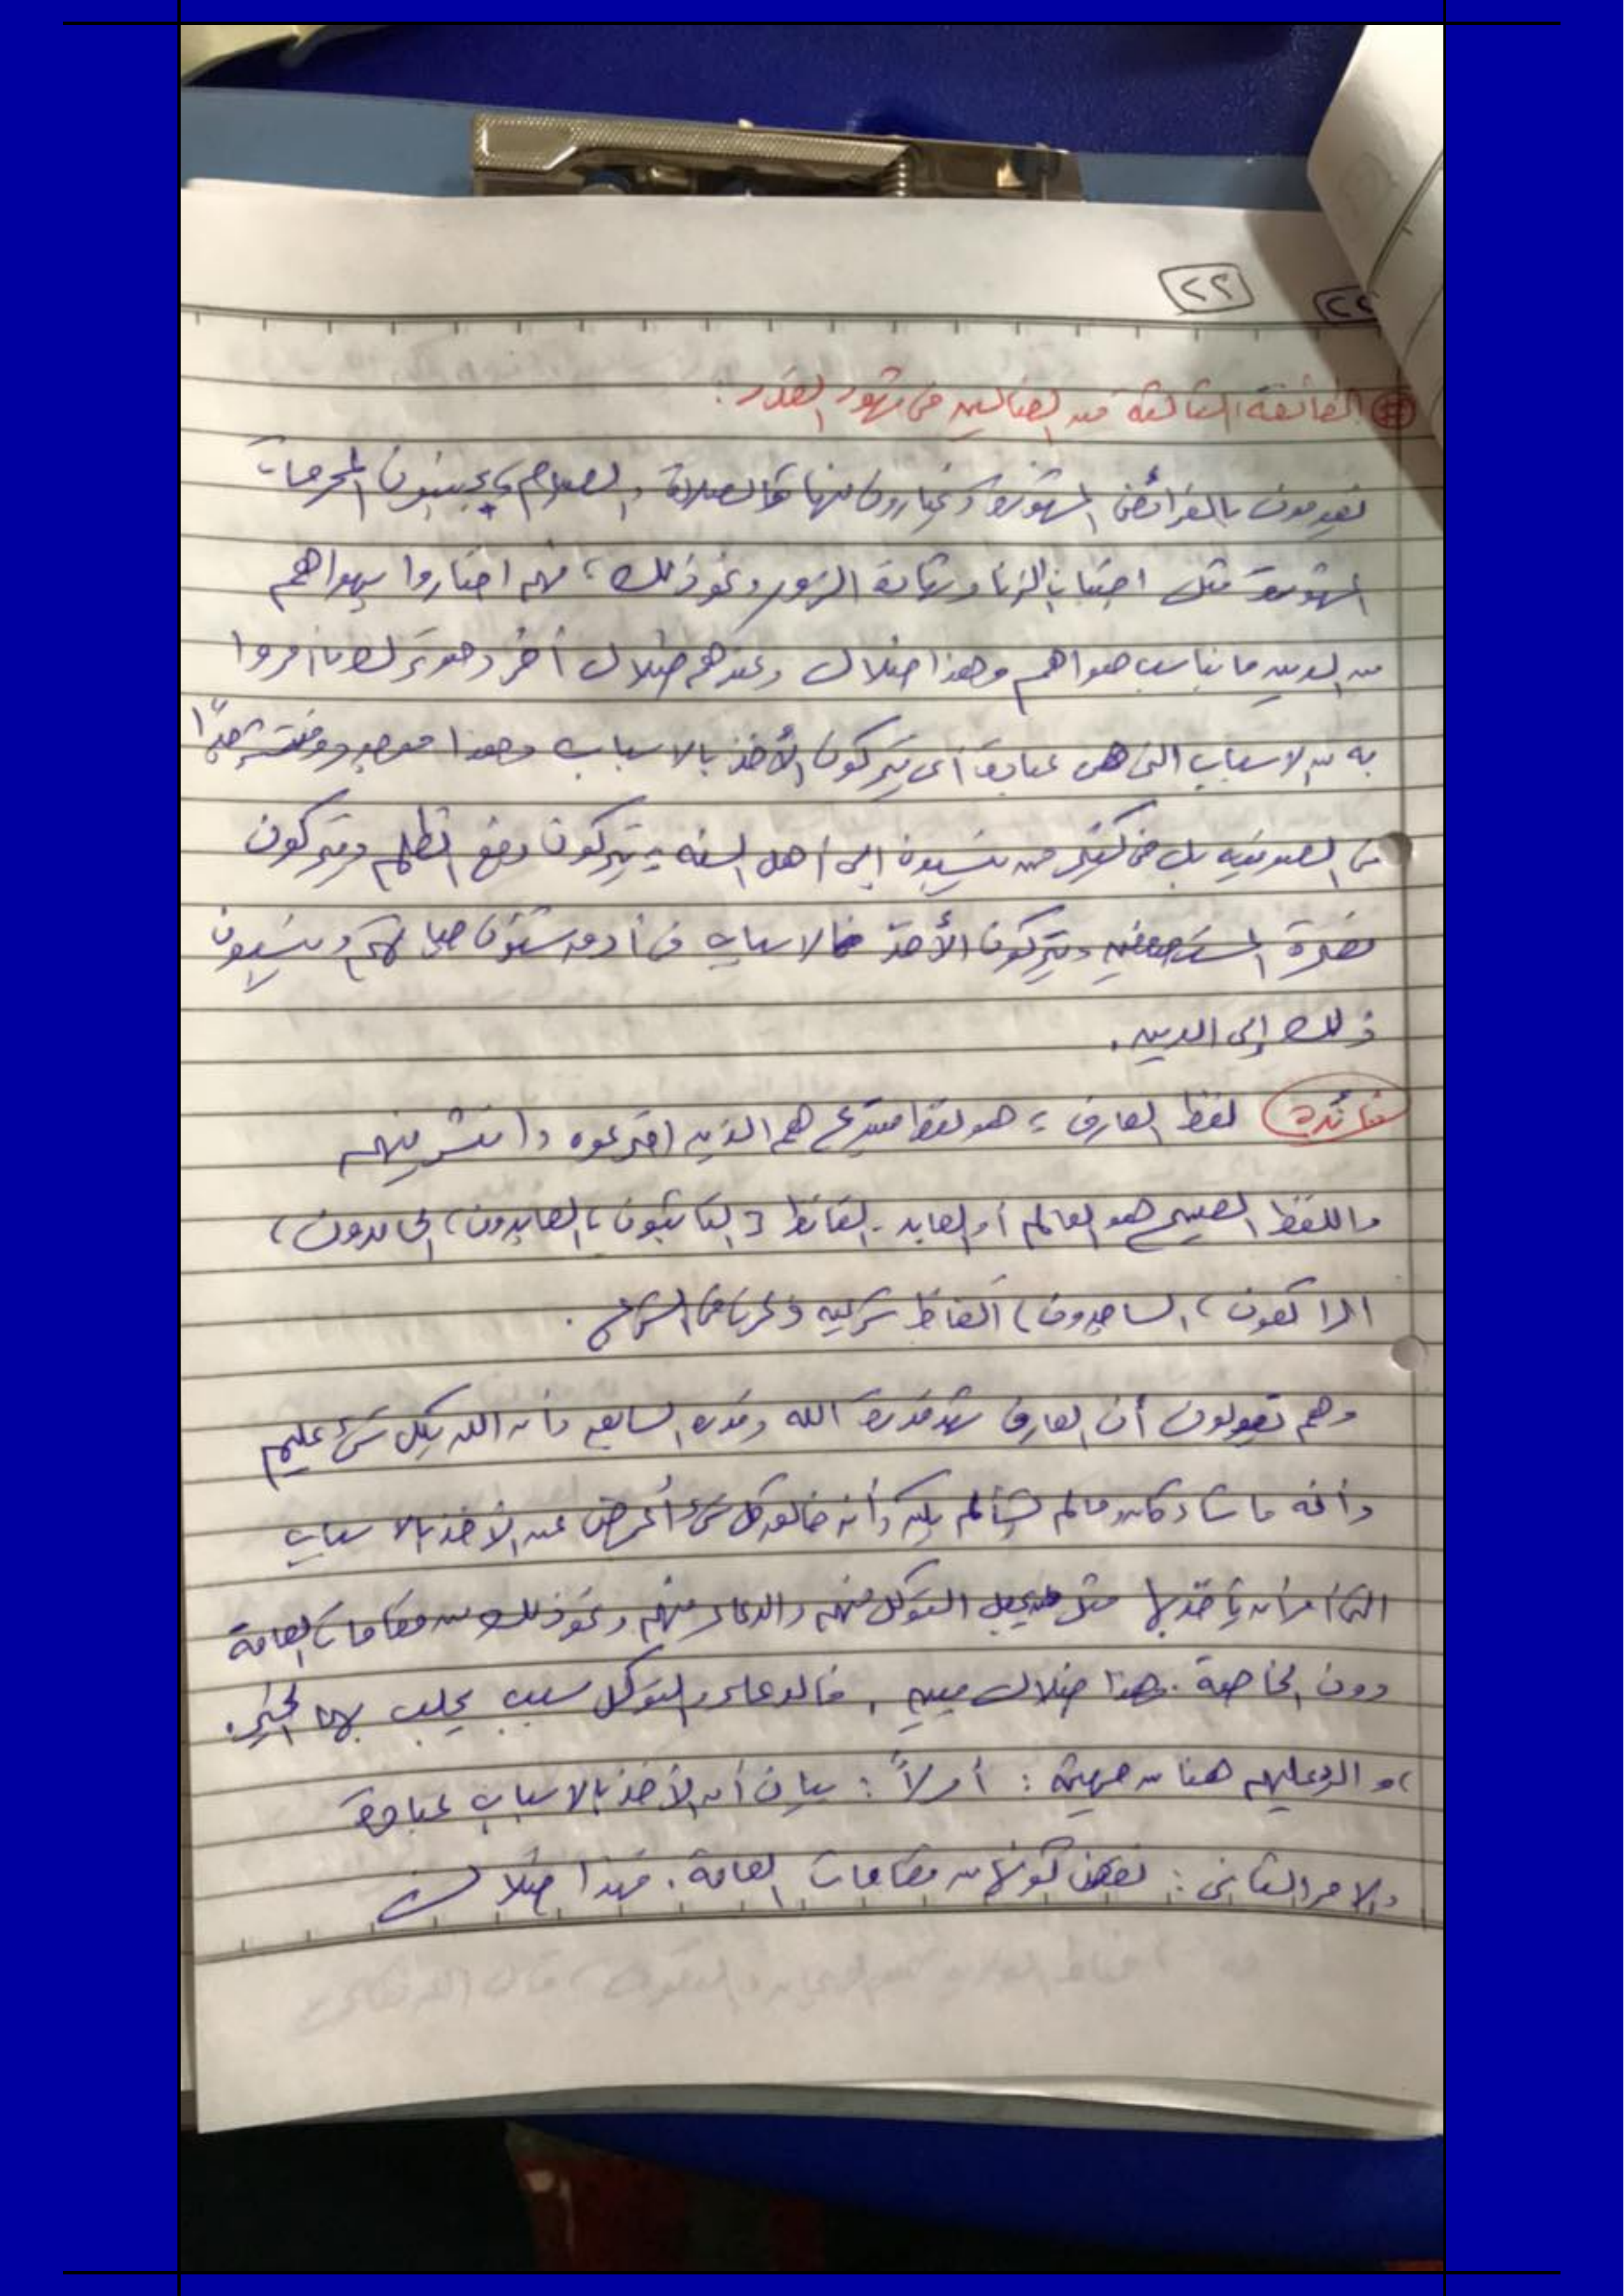 ٢٢
٢٢
# الطائفة الثالثة من الضالين فى شهود القدر :
يقومون بالفرائض المشهورة ويختارون منها كالصلاة والصيام ويجتنبون المحرمات
المشهورة مثل اجتناب الزنا وشهادة الزور ونحو ذلك، فهم اختاروا بهواهم
من الدين ما يناسب هواهم وهذا ضلال وعندهم ضلال أخر وهو ترك ما أمروا
به من الاسباب التى هى عبادة أى يتركون الأخذ بالاسباب وهذا موجود ومنتشر جدًا
فى الصوفيه بل فى كثير من ينسبون إلى أهل السنه يتركون دفع الظلم ويتركون
نصرة المستضعفين ويتركون الأخذ بالاسباب فى شئون حياتهم وينسبون
ذلك إلى الدين .
فائدة لفظ العارف : هو لفظ مبتدع هم الذين اخترعوه وانتشر بينهم
واللفظ الصحيح هو العالم أو العابد . الفاظ [ التائبون ، العابدون ، الحامدون ،
الراكعون ، الساجدون ) ألفاظ شرعيه ذكرها الشرع .
وهم يقولون أن العارف شهد قدرة الله وقدره السابق وأن الله بكل شئ عليم
وأنه ما شاء كان وما لم يشأ لم يكن وأنه خالق كل شئ أعرض عن الأخذ بالاسباب
التى أمر أن يأخذ بها مثل من يجعل التوكل منهم والدعاء منهم ونحو ذلك من مقامات العامة
دون الخاصة . هذا ضلال مبين . فالدعاء والتوكل سبب يجلب بهما الخير .
، والرد عليهم هنا من جهتين : أولاً : بيان أن الأخذ بالاسباب عبادة
والامر الثانى : نقض كونها من مقامات العامة . فهذا ضلال